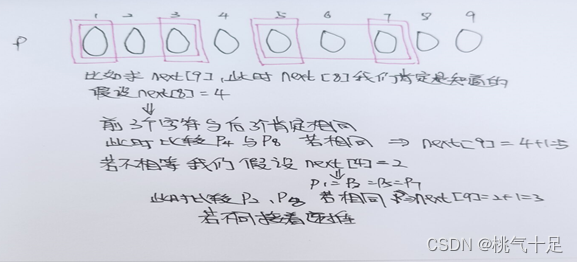 1 2 3 4 5 6 7 8 9
P
比如求 next[9],此时 next[8]我们肯定是知道的
假设next[8]=4
前3个字符与后3个肯定相同
此时比较 P4 与 P8 若相同 ⇒ next[9]=4+1=5
若不相等 我们假设 next[4]=2
P1=P3=P5=P7
此时比较 P2、P8 若相同 next[9]=2+1=3
若不同接着递推
CSDN @桃气十足